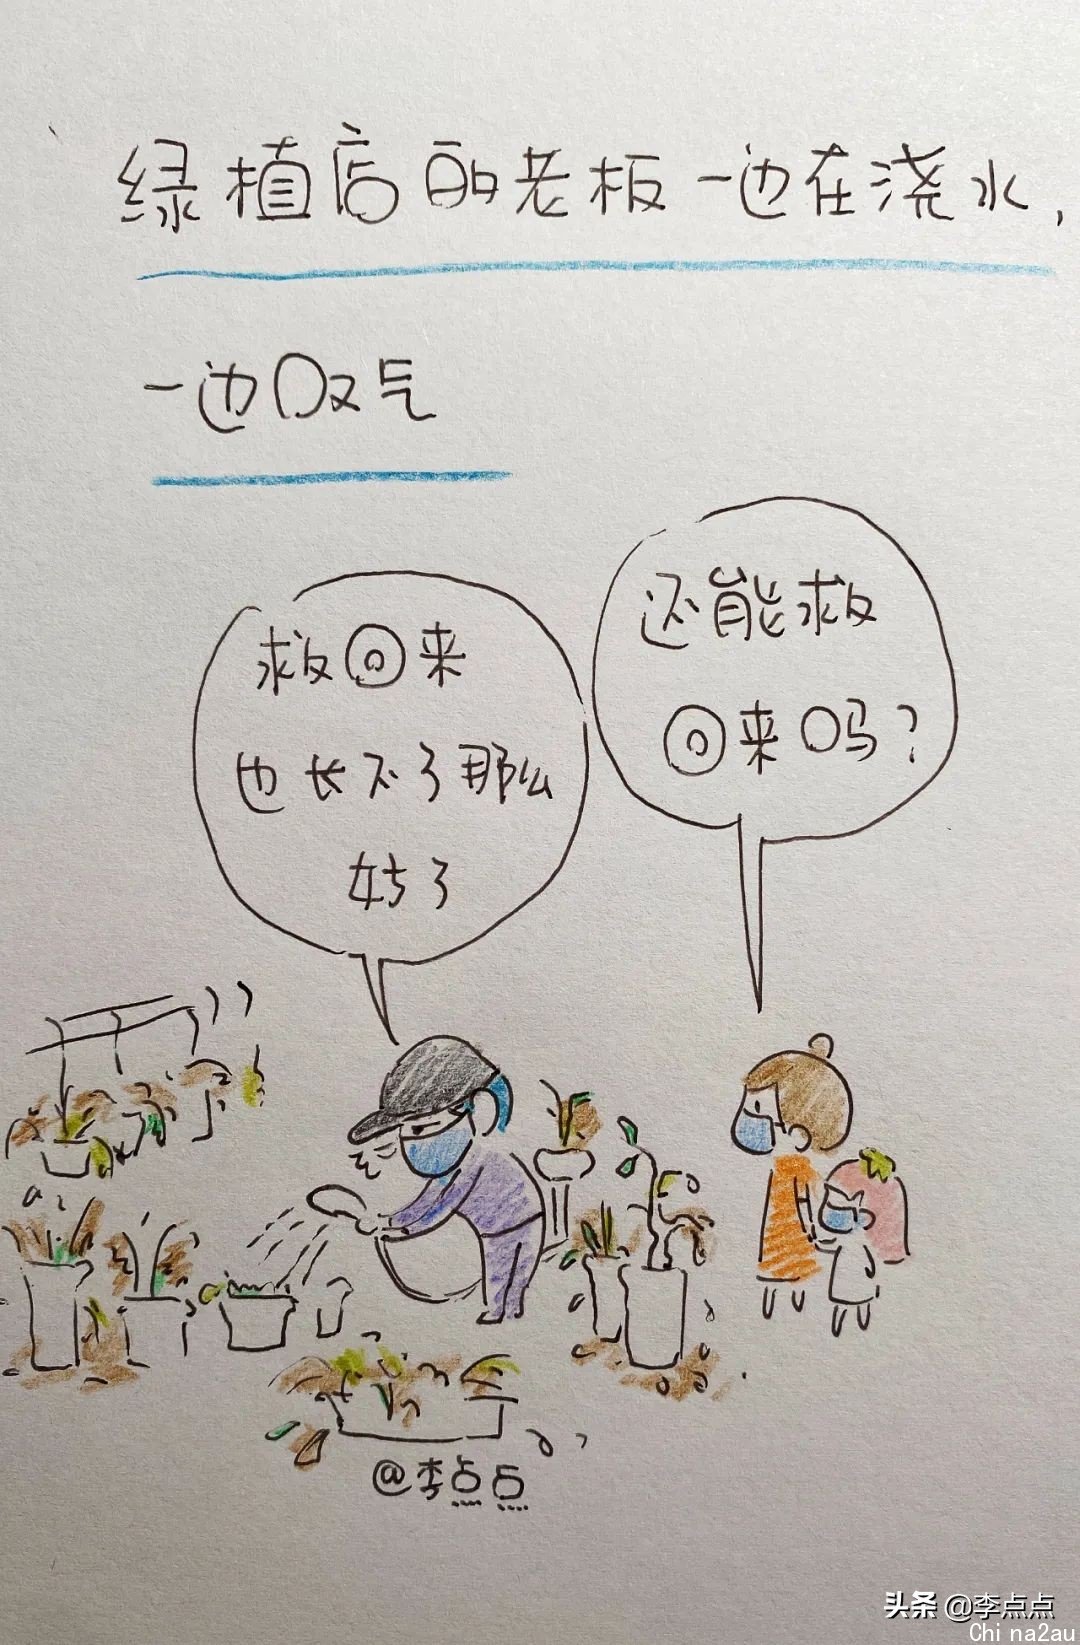 绿植店的老板一边在浇水,
一边叹气
还能救
回来吗?
救回来
也长不了那么
好了
@李点点
头条 @李点点
Chi na2au